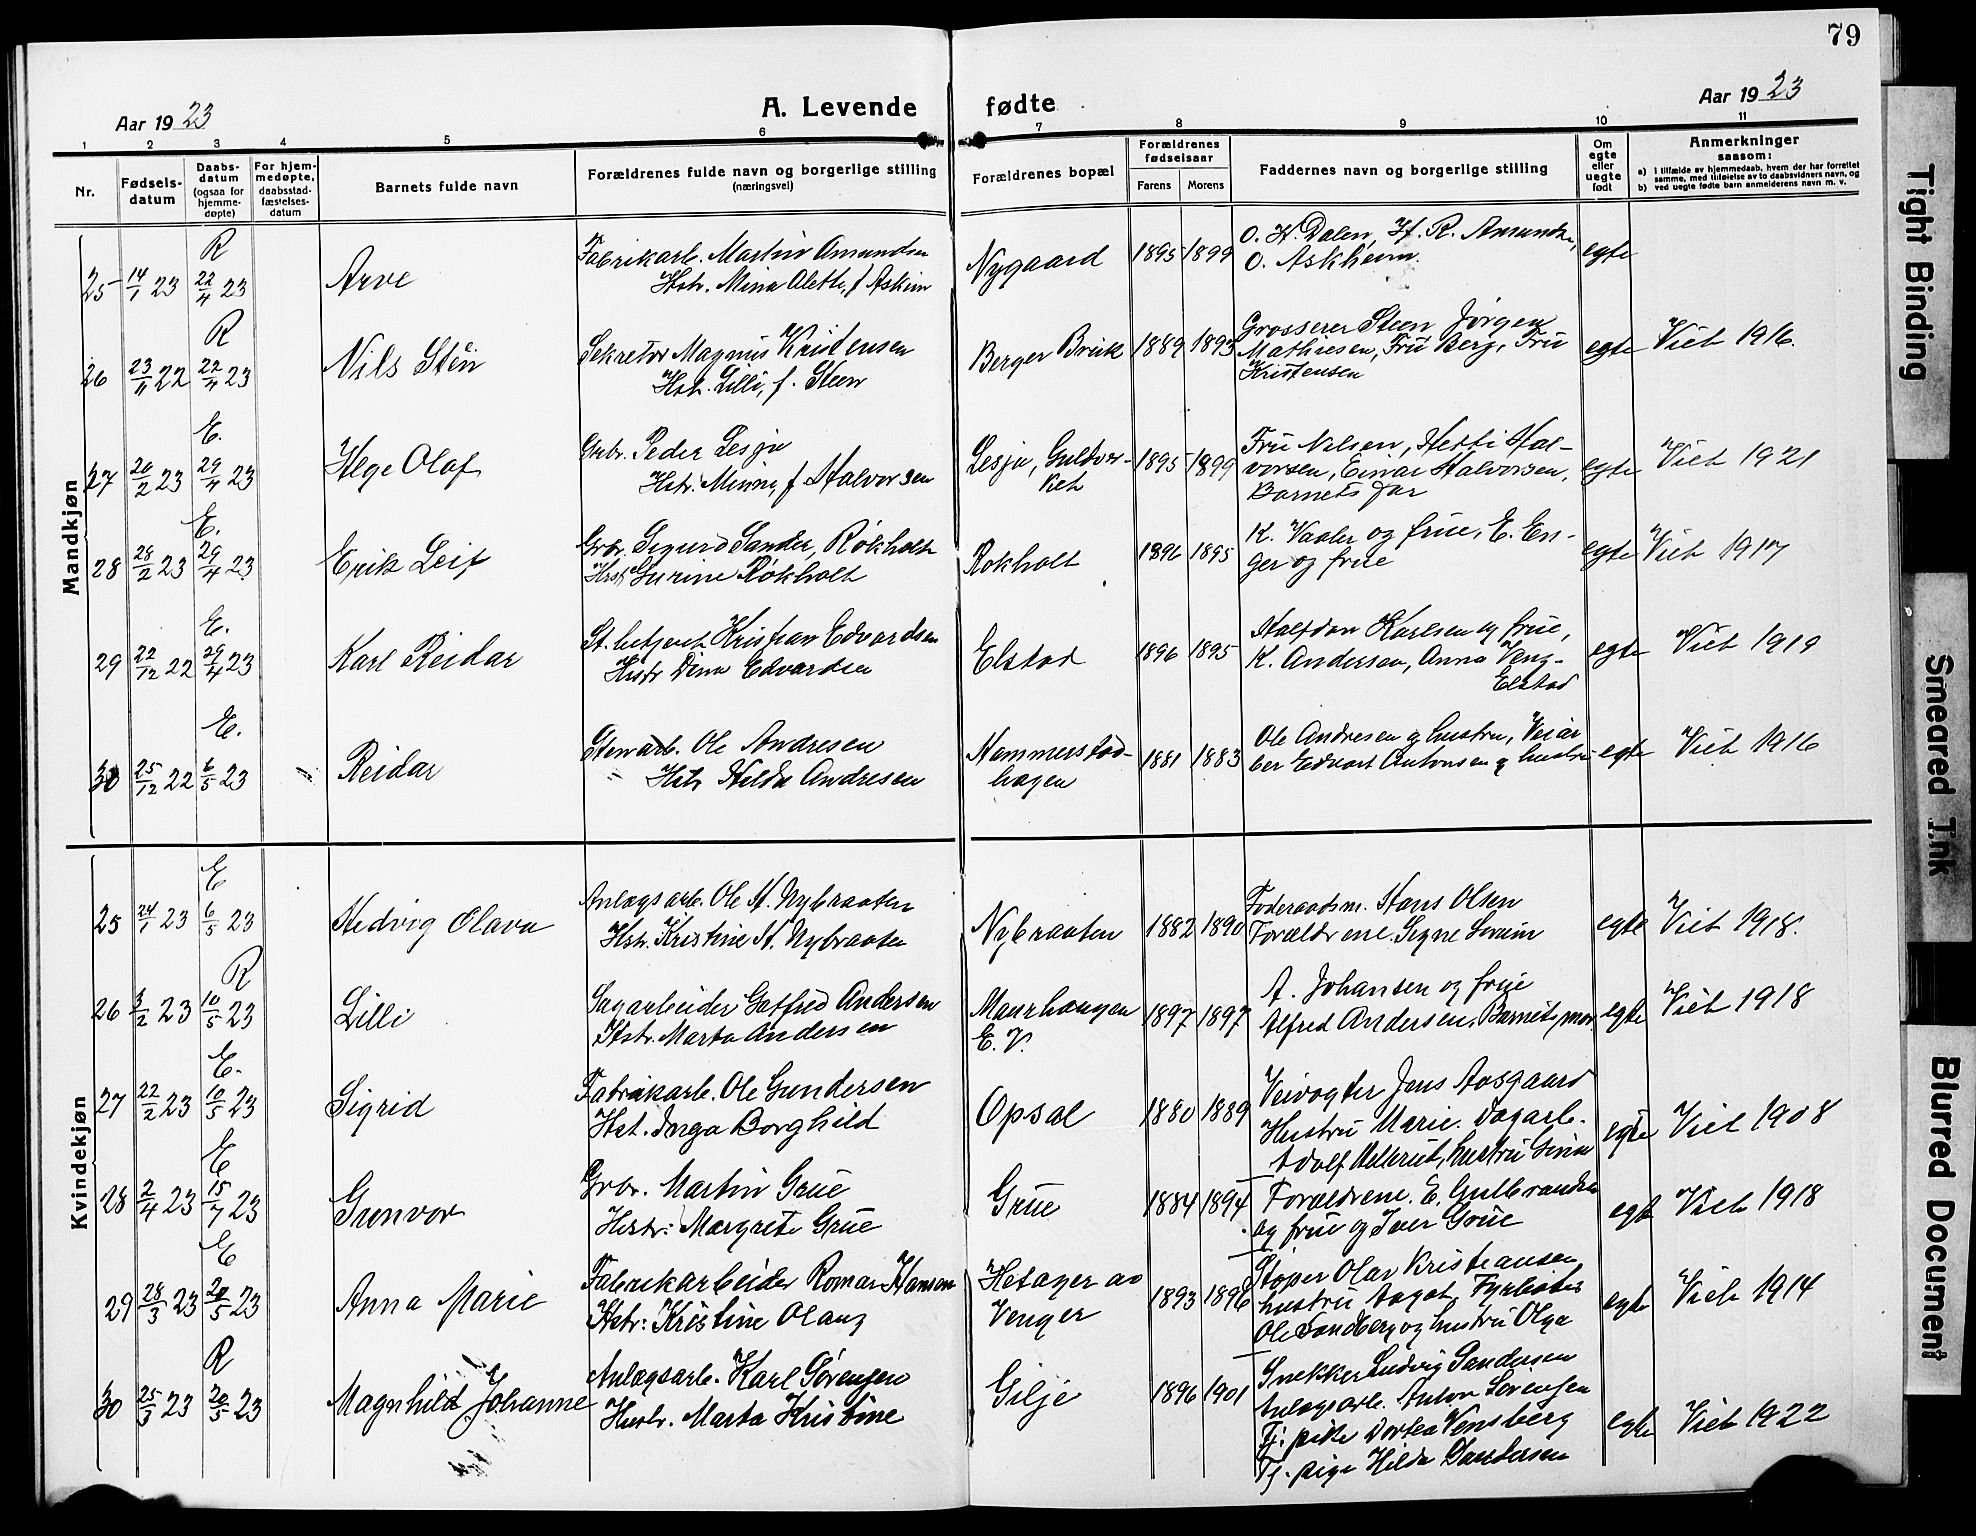 79
Aar 1923
A. Levende fødte
Aar 1923
1 2 3 4 5 6 7 8 9 10 11
Nr.
Fødsels-
datum
Daabs-
datum
(ogsaa for
hjemme-
døpte)
For hjem-
medøpte,
daabsstad-
fæstelses-
datum
Barnets fulde navn
Forældrenes fulde navn og borgerlige stilling
(næringsvei)
Forældrenes bopæl
Forældrenes
fødselsaar
Farens Morens
Faddernes navn og borgerlige stilling
Om
egte
eller
uegte
født
Anmerkninger
saasom:
a) I tilfælde av hjemmedaab, hvem der har forrettet
samme, med tilføielse av to daabsvidners navn, og
b) ved uegte fødte barn anmelderens navn m. v.
Mandkjøn
R
25 14/1 23 22/4 23 Arve
Fabrikarb. Martin Amundsen
Hstr. Mina Alette, f Askim
Nygaard 1895 1899
O. H. Dalen, Hf. R. Amundsen,
O. Askheim.
egte
R
26 23/11 22 22/4 23 Nils Stén
Sekretær Magnus Kristensen
Hstr. Lilli, f. Steen
Berger Bruk 1889 1893
Grosserer Steen, Jørgen
Mathiesen, Fru Berg, Fru
Kristensen
egte Viet 1916.
E.
27 20/2 23 29/4 23 Helge Olaf
Grbr. Peder Lesja
Hstr. Minna, f Halvorsen
Lesja, Gultvet 1895 1899
Fru Nilsen, Hetti Hal-
vorsen, Einar Halvorsen,
Barnets far
egte Viet 1921
E.
28 28/2 23 29/4 23 Erik Leif
Grbr. Sigurd Sander, Røkholt
Hstr Gurine Røkholt
Rokholt 1896 1895
K. Vaaler og frue, E. En-
ger og frue
egte Viet 1917
E.
29 22/12 22 29/4 23 Karl Reidar
St. betjent Kristian Edvardsen
Hstr Dina Edvardsen
Elstad 1896 1895
Halfdan Karlsen og frue,
K. Andersen, Anna Veng-
Elstad
egte Viet 1919
E.
30 25/12 22 6/5 23 Reidar
Stenarb. Ole Andresen
Hstr Hilda Andresen
Hammerstad-
hagen
1881 1883
Ole Andresen og hustru, Veiar
ber Edvart Antonsen og hustru
egte Viet 1916
Kvindekjøn
E
25 24/1 23 6/5 23 Hedvig Olava
Anlægsarb. Ole H. Nybraaten
Hstr. Kristine H. Nybraaten
Nybraaten 1882 1890
Føderaadsm. Hans Olsen
Forældrene. Signe
egte Viet 1918.
R
26 3/2 23 10/5 23 Lilli
Sagarbeider Gotfred Andersen
Hstr. Marta Andersen
Maurhaugen
E. V.
1897 1897
A. Johansen og frue
Alfred Andersen, Barnets mor
egte Viet 1918
E.
27 22/2 23 10/5 23 Sigrid
Fabrikarb. Ole Gundersen
Hst. Inga Borghild
Opsal 1880 1889
Veivogter Jens Aasgaard
Hustru Marie. Dagarb.
Adolf Hellerud, hustru Gina
egte Viet 1908
E
28 2/4 23 15/7 23 Gunvor
Grbr. Martin Grue
Hustr: Margrete Grue
Grue 1884 1894
Forældrene. E. Gulbrandsen
og frue og Iver Grue
egte Viet 1918
E
29 28/3 23 20/5 23 Anna Marie
Fabrikarbeider Romar Hansen
Hstr: Kristine Olaug
Hetager av
Venger
1893 1896
Støper Olav Kristiansen
hustru Aagot, Fyrbøter
Ole Sandberg og hustru Olga
egte Viet 1914
R
30 25/3 23 20/5 23 Magnhild Johanne
Anlægsarb. Karl Sørensen
Hustr. Marta Kristine
Gilje 1896 1901
Snekker Ludvig Sandersen
Anlægsarb. Anton Sørensen
Tj. pike Dortea Vensberg
Tj. pige Hilda Sandersen
egte Viet 1922
Tight Binding
Smeared Ink
Blurred Document